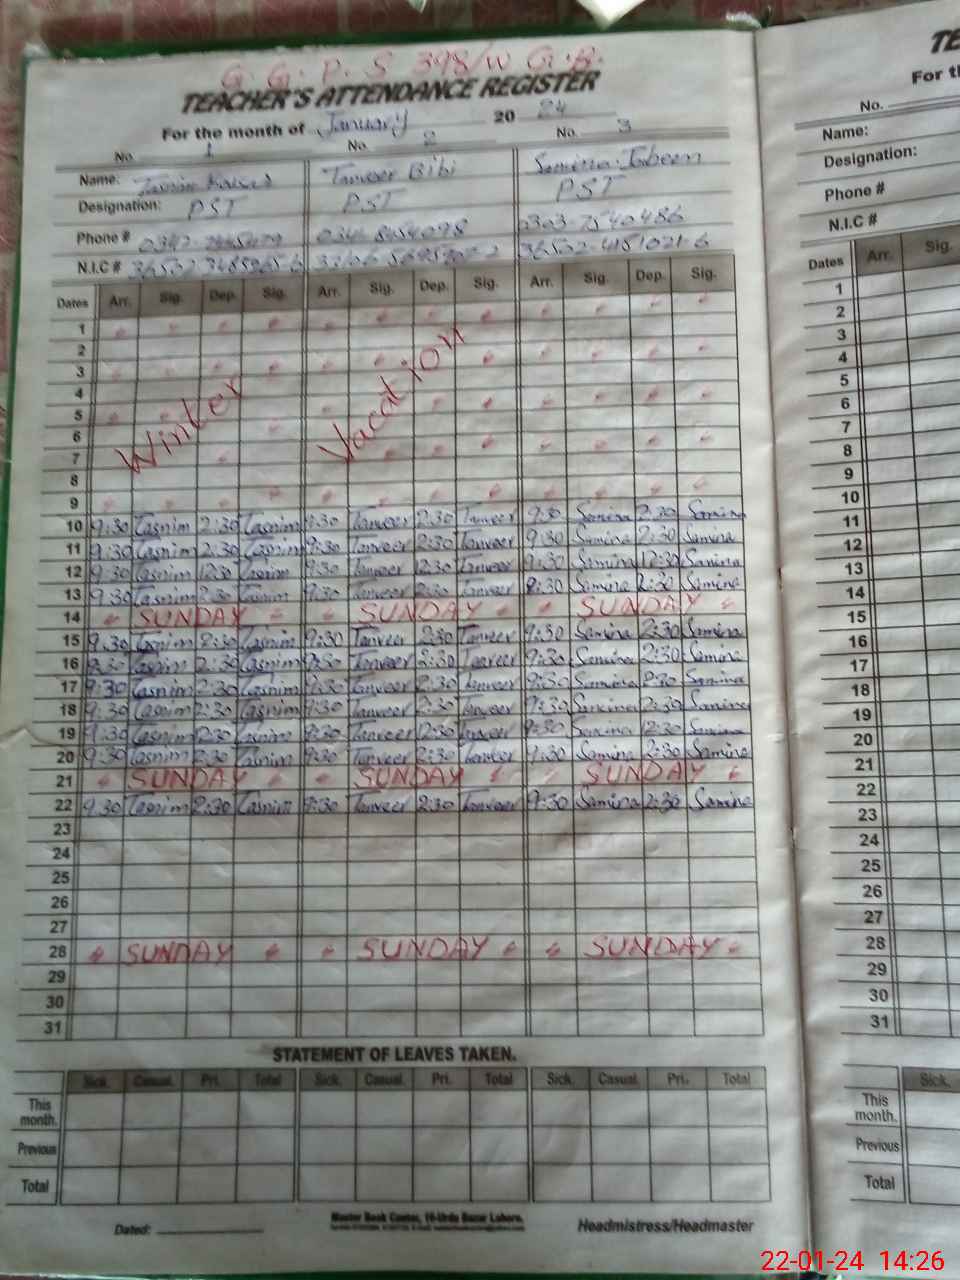 G. G. P. S 398/W G.B.
TEACHER'S ATTENDANCE REGISTER
For the month of January 20 24
No. 1 No. 2 No. 3
Name: Tasnim Tanveer Bibi Samina Jabeen
Designation: PST PST PST
Phone # 0303-7540486
N.I.C # 36502-4151021-6
Dates Arr. Sig. Dep. Sig. Arr. Sig. Dep. Sig. Arr. Sig. Dep. Sig.
1
2
3
4
5
6
7
8
9
Winter Vacation
10 9:30 Tasnim 2:30 Tasnim 9:30 Tanveer 2:30 Tanveer 9:30 Samina 2:30 Samina
11 9:30 Tasnim 2:30 Tasnim 9:30 Tanveer 2:30 Tanveer 9:30 Samina 2:30 Samina
12 9:30 Tasnim 12:30 Tasnim 9:30 Tanveer 12:30 Tanveer 9:30 Samina 12:30 Samina
13 9:30 Tasnim 2:30 Tasnim 9:30 Tanveer 2:30 Tanveer 9:30 Samina 2:30 Samina
14 SUNDAY SUNDAY SUNDAY
15 9:30 Tasnim 2:30 Tasnim 9:30 Tanveer 2:30 Tanveer 9:30 Samina 2:30 Samina
16 9:30 Tasnim 2:30 Tasnim 9:30 Tanveer 2:30 Tanveer 9:30 Samina 2:30 Samina
17 9:30 Tasnim 2:30 Tasnim 9:30 Tanveer 2:30 Tanveer 9:30 Samina 2:30 Samina
18 9:30 Tasnim 2:30 Tasnim 9:30 Tanveer 2:30 Tanveer 9:30 Samina 2:30 Samina
19 9:30 Tasnim 12:30 Tasnim 9:30 Tanveer 12:30 Tanveer 9:30 Samina 12:30 Samina
20 9:30 Tasnim 2:30 Tasnim 9:30 Tanveer 2:30 Tanveer 9:30 Samina 2:30 Samina
21 SUNDAY SUNDAY SUNDAY
22 9:30 Tasnim 2:30 Tasnim 9:30 Tanveer 2:30 Tanveer 9:30 Samina 2:30 Samina
23
24
25
26
27
28 SUNDAY SUNDAY SUNDAY
29
30
31
STATEMENT OF LEAVES TAKEN.
Sick. Casual. Pri. Total Sick. Casual. Pri. Total Sick. Casual. Pri. Total
This month.
Previous
Total
Dated:
Master Book Center, 16-Urdu Bazar Lahore.
Headmistress/Headmaster
TE
For th
No.
Name:
Designation:
Phone #
N.I.C #
Dates Arr. Sig.
1
2
3
4
5
6
7
8
9
10
11
12
13
14
15
16
17
18
19
20
21
22
23
24
25
26
27
28
29
30
31
Sick.
This month.
Previous
Total
22-01-24 14:26